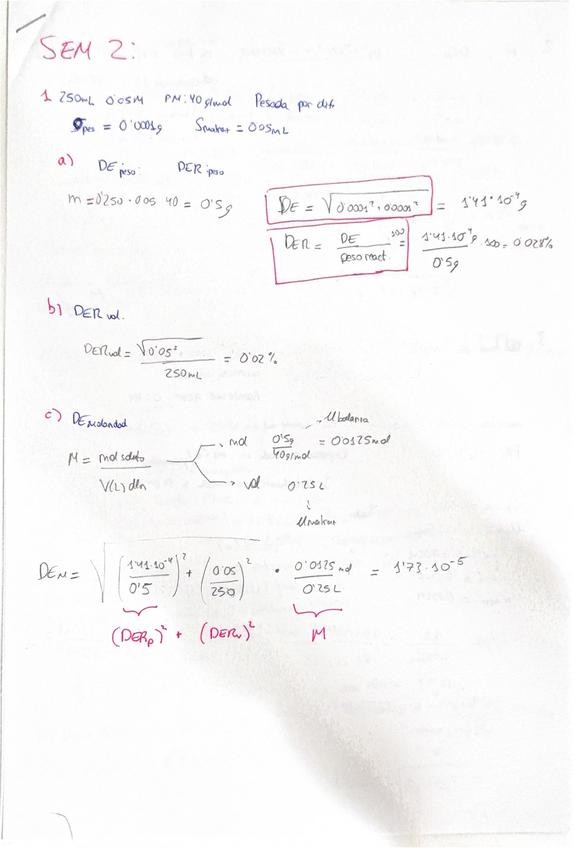 SEM 2:
1. 250mL 0'05M PM: 40 g/mol Pesada por dif.
σpes = 0'0001g Smatraz = 0'05mL
a) DE peso: DER peso
m = 0'250 · 0'05 · 40 = 0'5g
DE = √0'0001² + 0'0001² = 1'41 · 10⁻⁴g
DER = DE / peso react. · 100 = 1'41·10⁻⁴g / 0'5g · 100 = 0'028%
b) DER vol.
DERvol = √0'05² / 250mL = 0'02%
c) DE molaridad
M = mol soluto / V(L) dln
mol 0'5g / 40g/mol = 0'0125mol
vol 0'25L
Umatraz
DEM = √(1'41·10⁻⁴ / 0'5)² + (0'05 / 250)² · 0'0125 mol / 0'25L = 1'73·10⁻⁵
(DERp)² + (DERv)² M